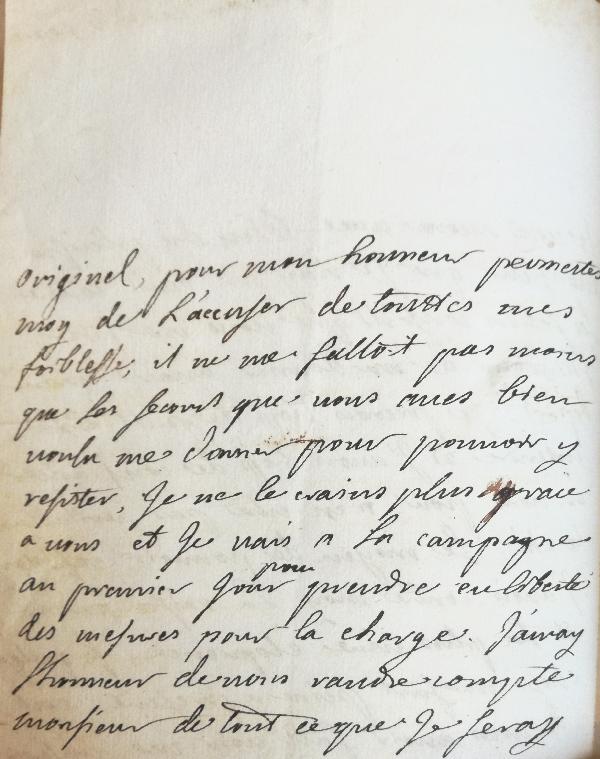 originel, pour mon honneur permettes
moy de L'accuser de touttes mes
foiblesse, il ne me falloit pas moins
que Les secours que vous aues bien
voulu me donner pour pouuoir y
resister, Je ne le crains plus grace
a vous et Je vais a La campagne
au premier Jour pour prendre en liberté
des mesures pour la charge. J'auray
l'honneur de vous randre compte
monsieur de tout ce que Je feray